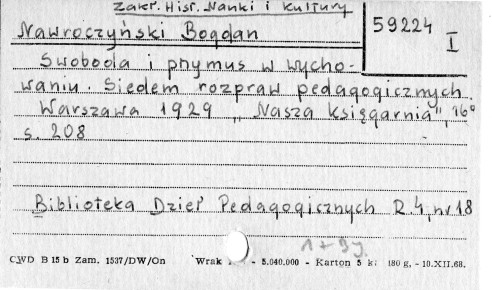 Zakł. Hist. Nauki i Kultury
59224
I
Nawroczyński Bogdan
Swoboda i przymus w wycho-
waniu. Siedem rozpraw pedagogicznych.
Warszawa 1929 „Nasza Księgarnia", 16°
s. 208
Biblioteka Dzieł Pedagogicznych R.4, nr 18
CWD B 15 b Zam. 1537/DW/On Wrak - 5.040.000 - Karton 5 k: 180 g, - 10.XII.68.